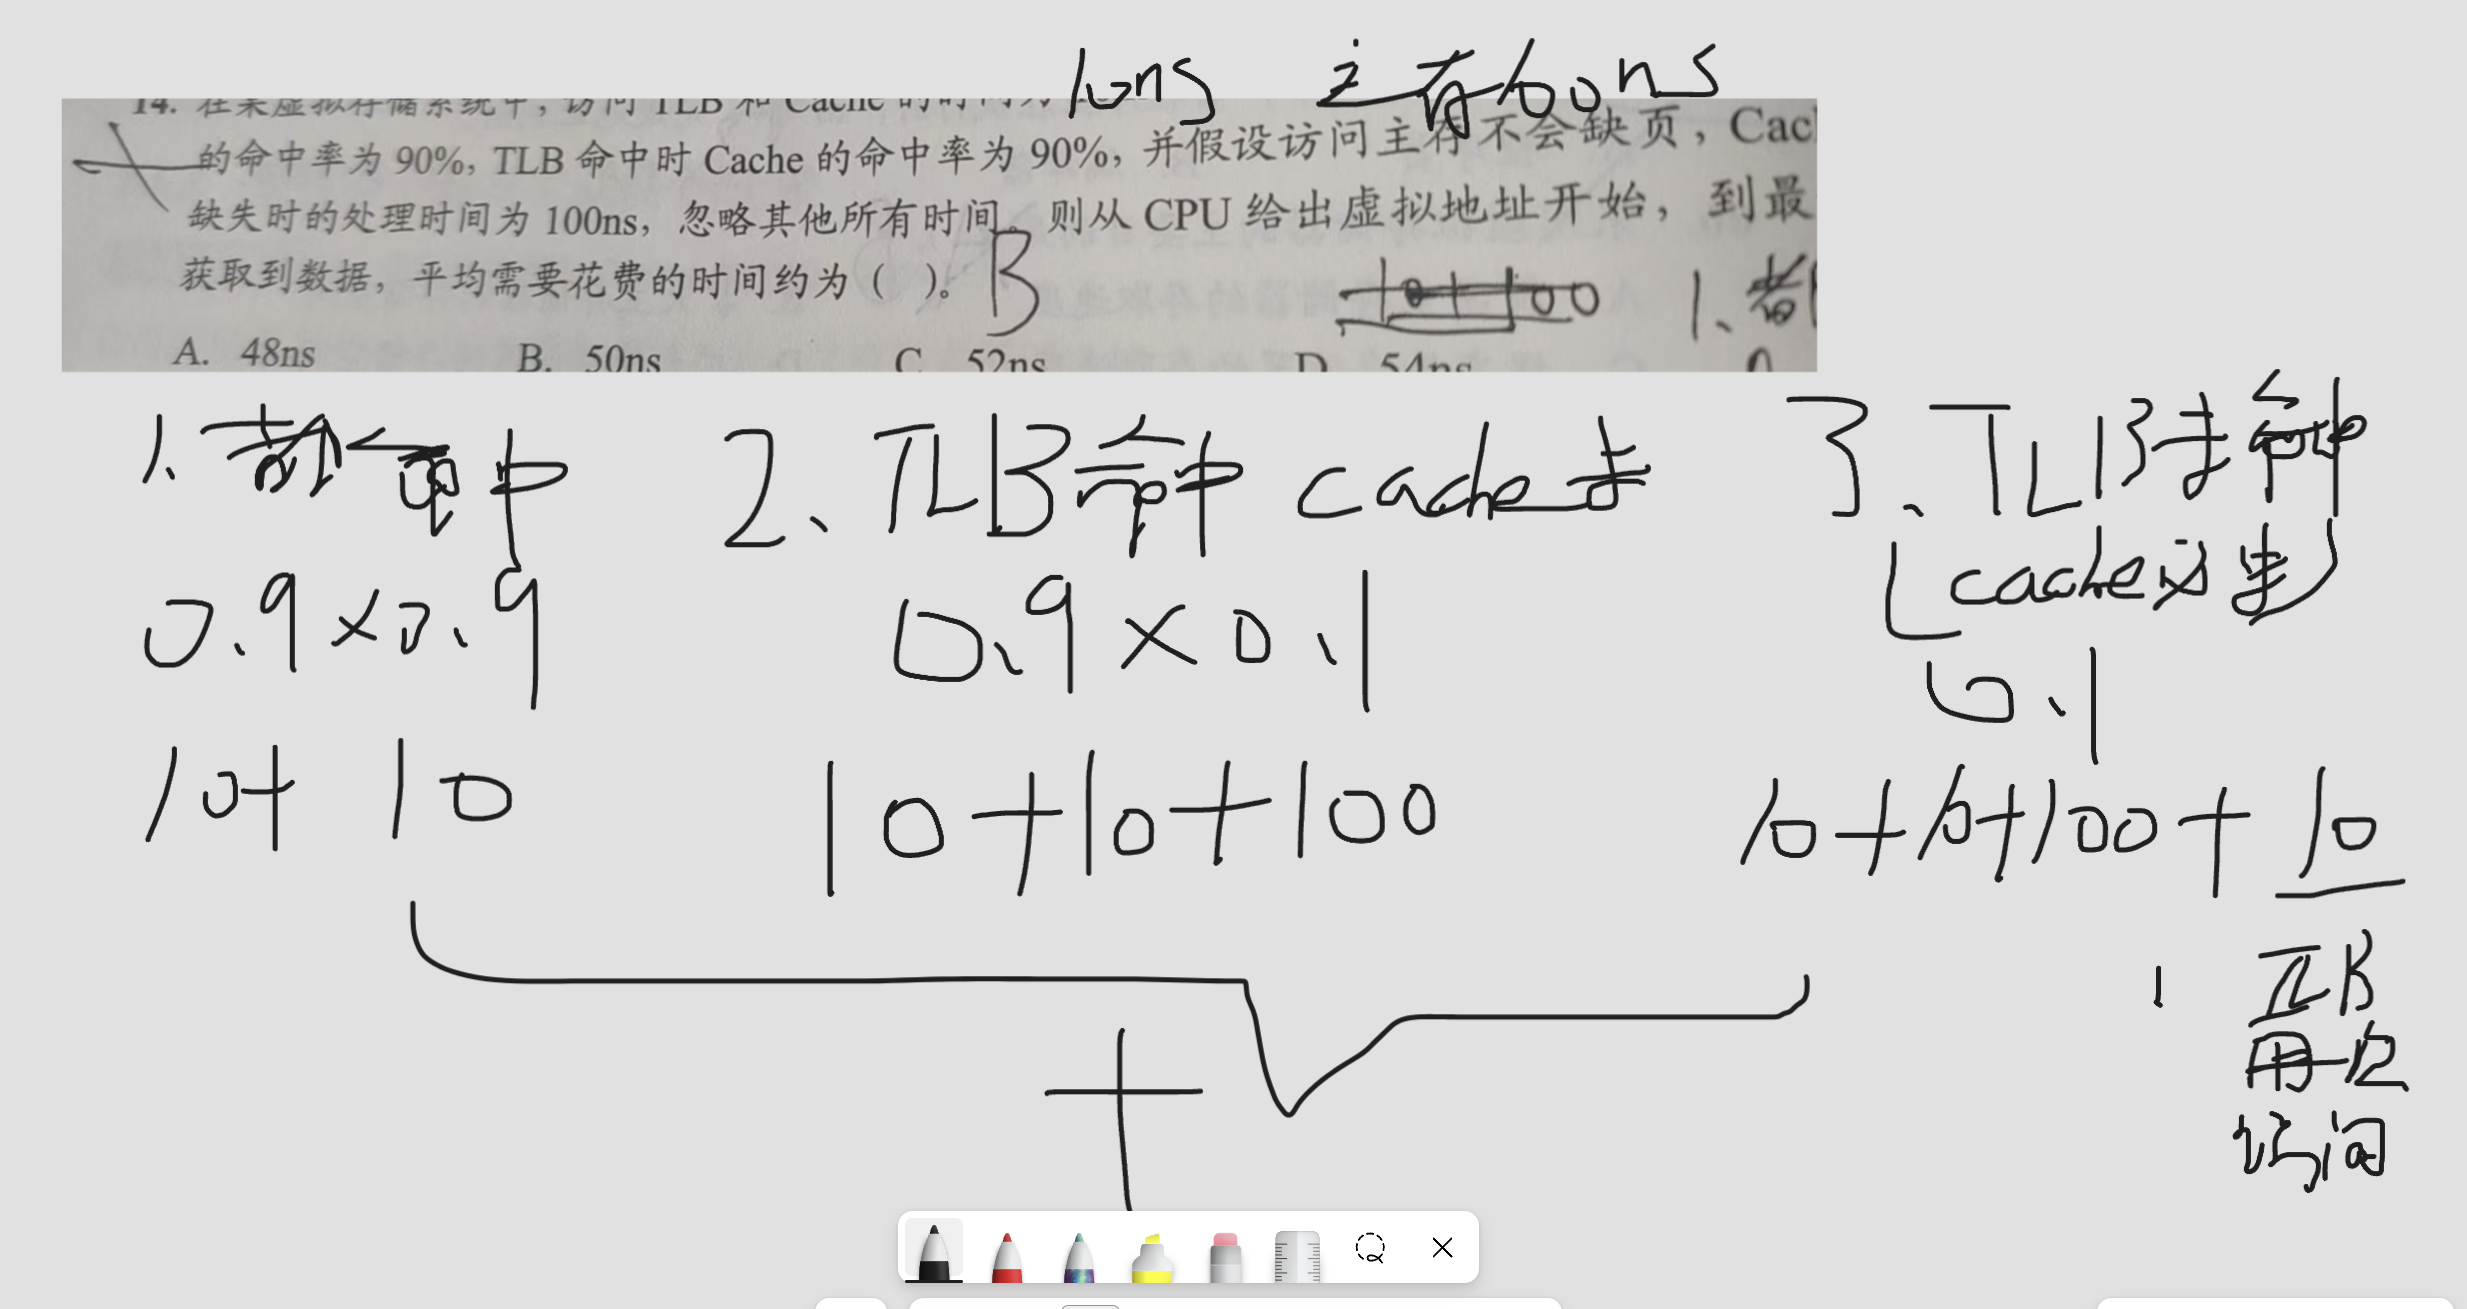 10ns 主存100ns
14. 在某虚拟存储系统中, 访问 TLB 和 Cache 的时间为
的命中率为 90%, TLB 命中时 Cache 的命中率为 90%, 并假设访问主存不会缺页, Cac
缺失时的处理时间为 100ns, 忽略其他所有时间。则从 CPU 给出虚拟地址开始, 到最
获取到数据, 平均需要花费的时间约为 ( )。 B
10+100 1、都
A. 48ns B. 50ns C 52ns D 54ns
1、都命中 2、TLB命中 cache未 3、TLB未命中
(cache必未)
0.9×0.9 0.9×0.1 0.1
10+10 10+10+100 10+10+100+10
TLB
再一次
访问
+